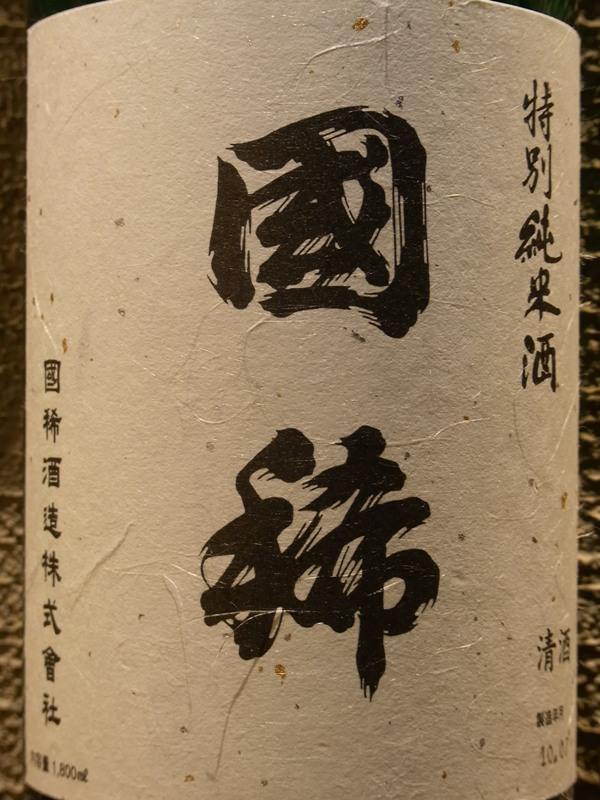 特別純米酒
國稀
國稀酒造株式會社
清酒
製造年月
10.0
内容量 1,800㎖